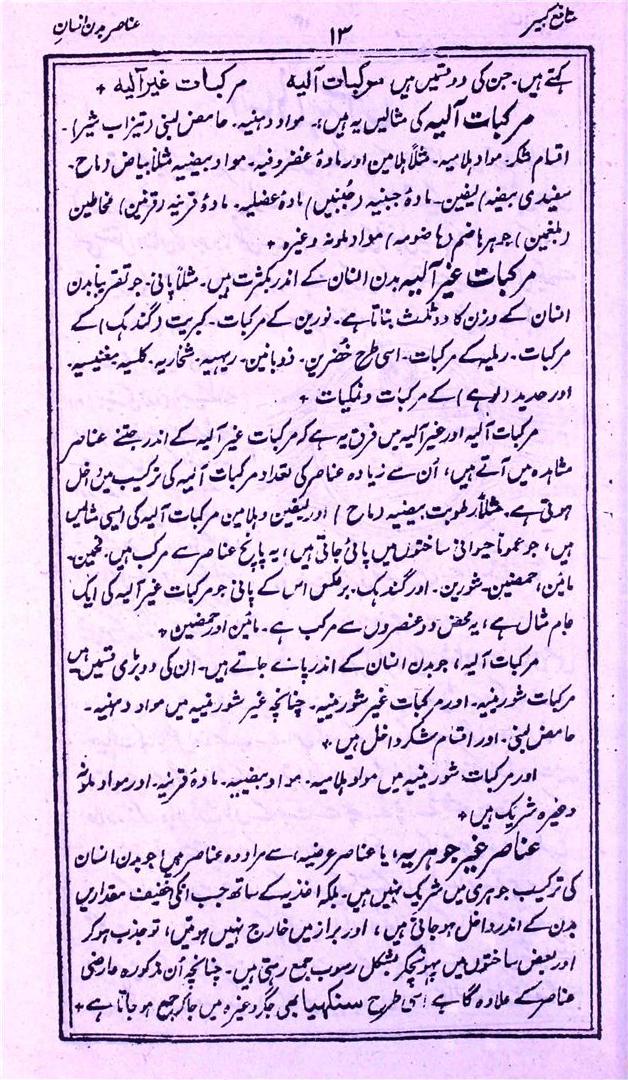 منافع کبیر
۱۳
عناصر بدن انسان
کہتے ہیں۔ جن کی دو قسمیں ہیں مرکبات آلیہ مرکبات غیر آلیہ +
مرکبات آلیہ کی مثالیں یہ ہیں: مواد دہنیہ۔ حامض لبنی (تیزاب شیر)۔
اقسام شکر۔ مواد ہلامیہ۔ مثلاً ہلامین اور مادۂ غضروفیہ۔ مواد بیضیہ مثلاً بیاض (ماح۔
سفیدی بیضہ) لیفین۔ مادۂ جبنیہ (جُبنین) مادۂ عضلیہ۔ مادۂ قرنیہ (قرنین) مخاطین
(بلغمین) جوہر ہاضم (ہاضومہ) مواد ملونہ وغیرہ +
مرکبات غیر آلیہ بدن انسان کے اندر بکثرت ہیں۔ مثلاً پانی۔ جو تقریباً بدن
انسان کے وزن کا دو ثلث بناتا ہے۔ نورین کے مرکبات۔ کبریت (گندہک) کے
مرکبات۔ رملیہ کے مرکبات۔ اسی طرح خُضرین۔ ذوبانین۔ ریہیہ۔ شخاریہ۔ کلسیہ مغنیسیہ
اور حدید (لوہے) کے مرکبات و نمکیات +
مرکبات آلیہ اور غیر آلیہ میں فرق یہ ہے کہ مرکبات غیر آلیہ کے اندر جتنے عناصر
مشاہدہ میں آتے ہیں، اُن سے زیادہ عناصر کی تعداد مرکبات آلیہ کی ترکیب میں داخل
ہوتی ہے۔ مثلاً رطوبت بیضیہ (ماح) اور لیفین و ہلامین مرکبات آلیہ کی ایسی مثالیں
ہیں، جو عموماً حیوانی ساختوں میں پائی جاتی ہیں، یہ پانچ عناصر سے مرکب ہیں۔ فحمین۔
مائین، حمضین۔ شورین۔ اور گندہک۔ برعکس اس کے پانی جو مرکبات غیر آلیہ کی ایک
عام مثال ہے، یہ محض دو عنصروں سے مرکب ہے۔ مائین اور حمضین +
مرکبات آلیہ، جو بدن انسان کے اندر پائے جاتے ہیں۔ ان کی دو بڑی قسمیں ہیں
مرکبات شورینیہ۔ اور مرکبات غیر شورینیہ۔ چنانچہ غیر شورینیہ میں مواد دہنیہ۔
حامض لبنی۔ اور اقسام شکر داخل ہیں +
اور مرکبات شورینیہ میں مواد ہلامیہ۔ مواد بیضیہ۔ مادۂ قرنیہ۔ اور مواد ملونہ
وغیرہ شریک ہیں +
عناصر غیر جوہریہ، یا عناصر عرضیہ، سے مراد وہ عناصر ہیں، جو بدن انسان
کی ترکیب جوہری میں شریک نہیں ہیں۔ بلکہ اغذیہ کے ساتھ جب انکی خفیف مقداریں
بدن کے اندر داخل ہو جاتی ہیں، اور براز میں خارج نہیں ہوتیں، تو جذب ہو کر
اور بعض ساختوں میں پہونچکر بشکل رسوب جمع رہتی ہیں۔ چنانچہ اُن مذکورہ عارضی
عناصر کے علاوہ گاہے اسی طرح سنکھیا بھی جگر وغیرہ میں جا کر جمع ہو جاتا ہے +